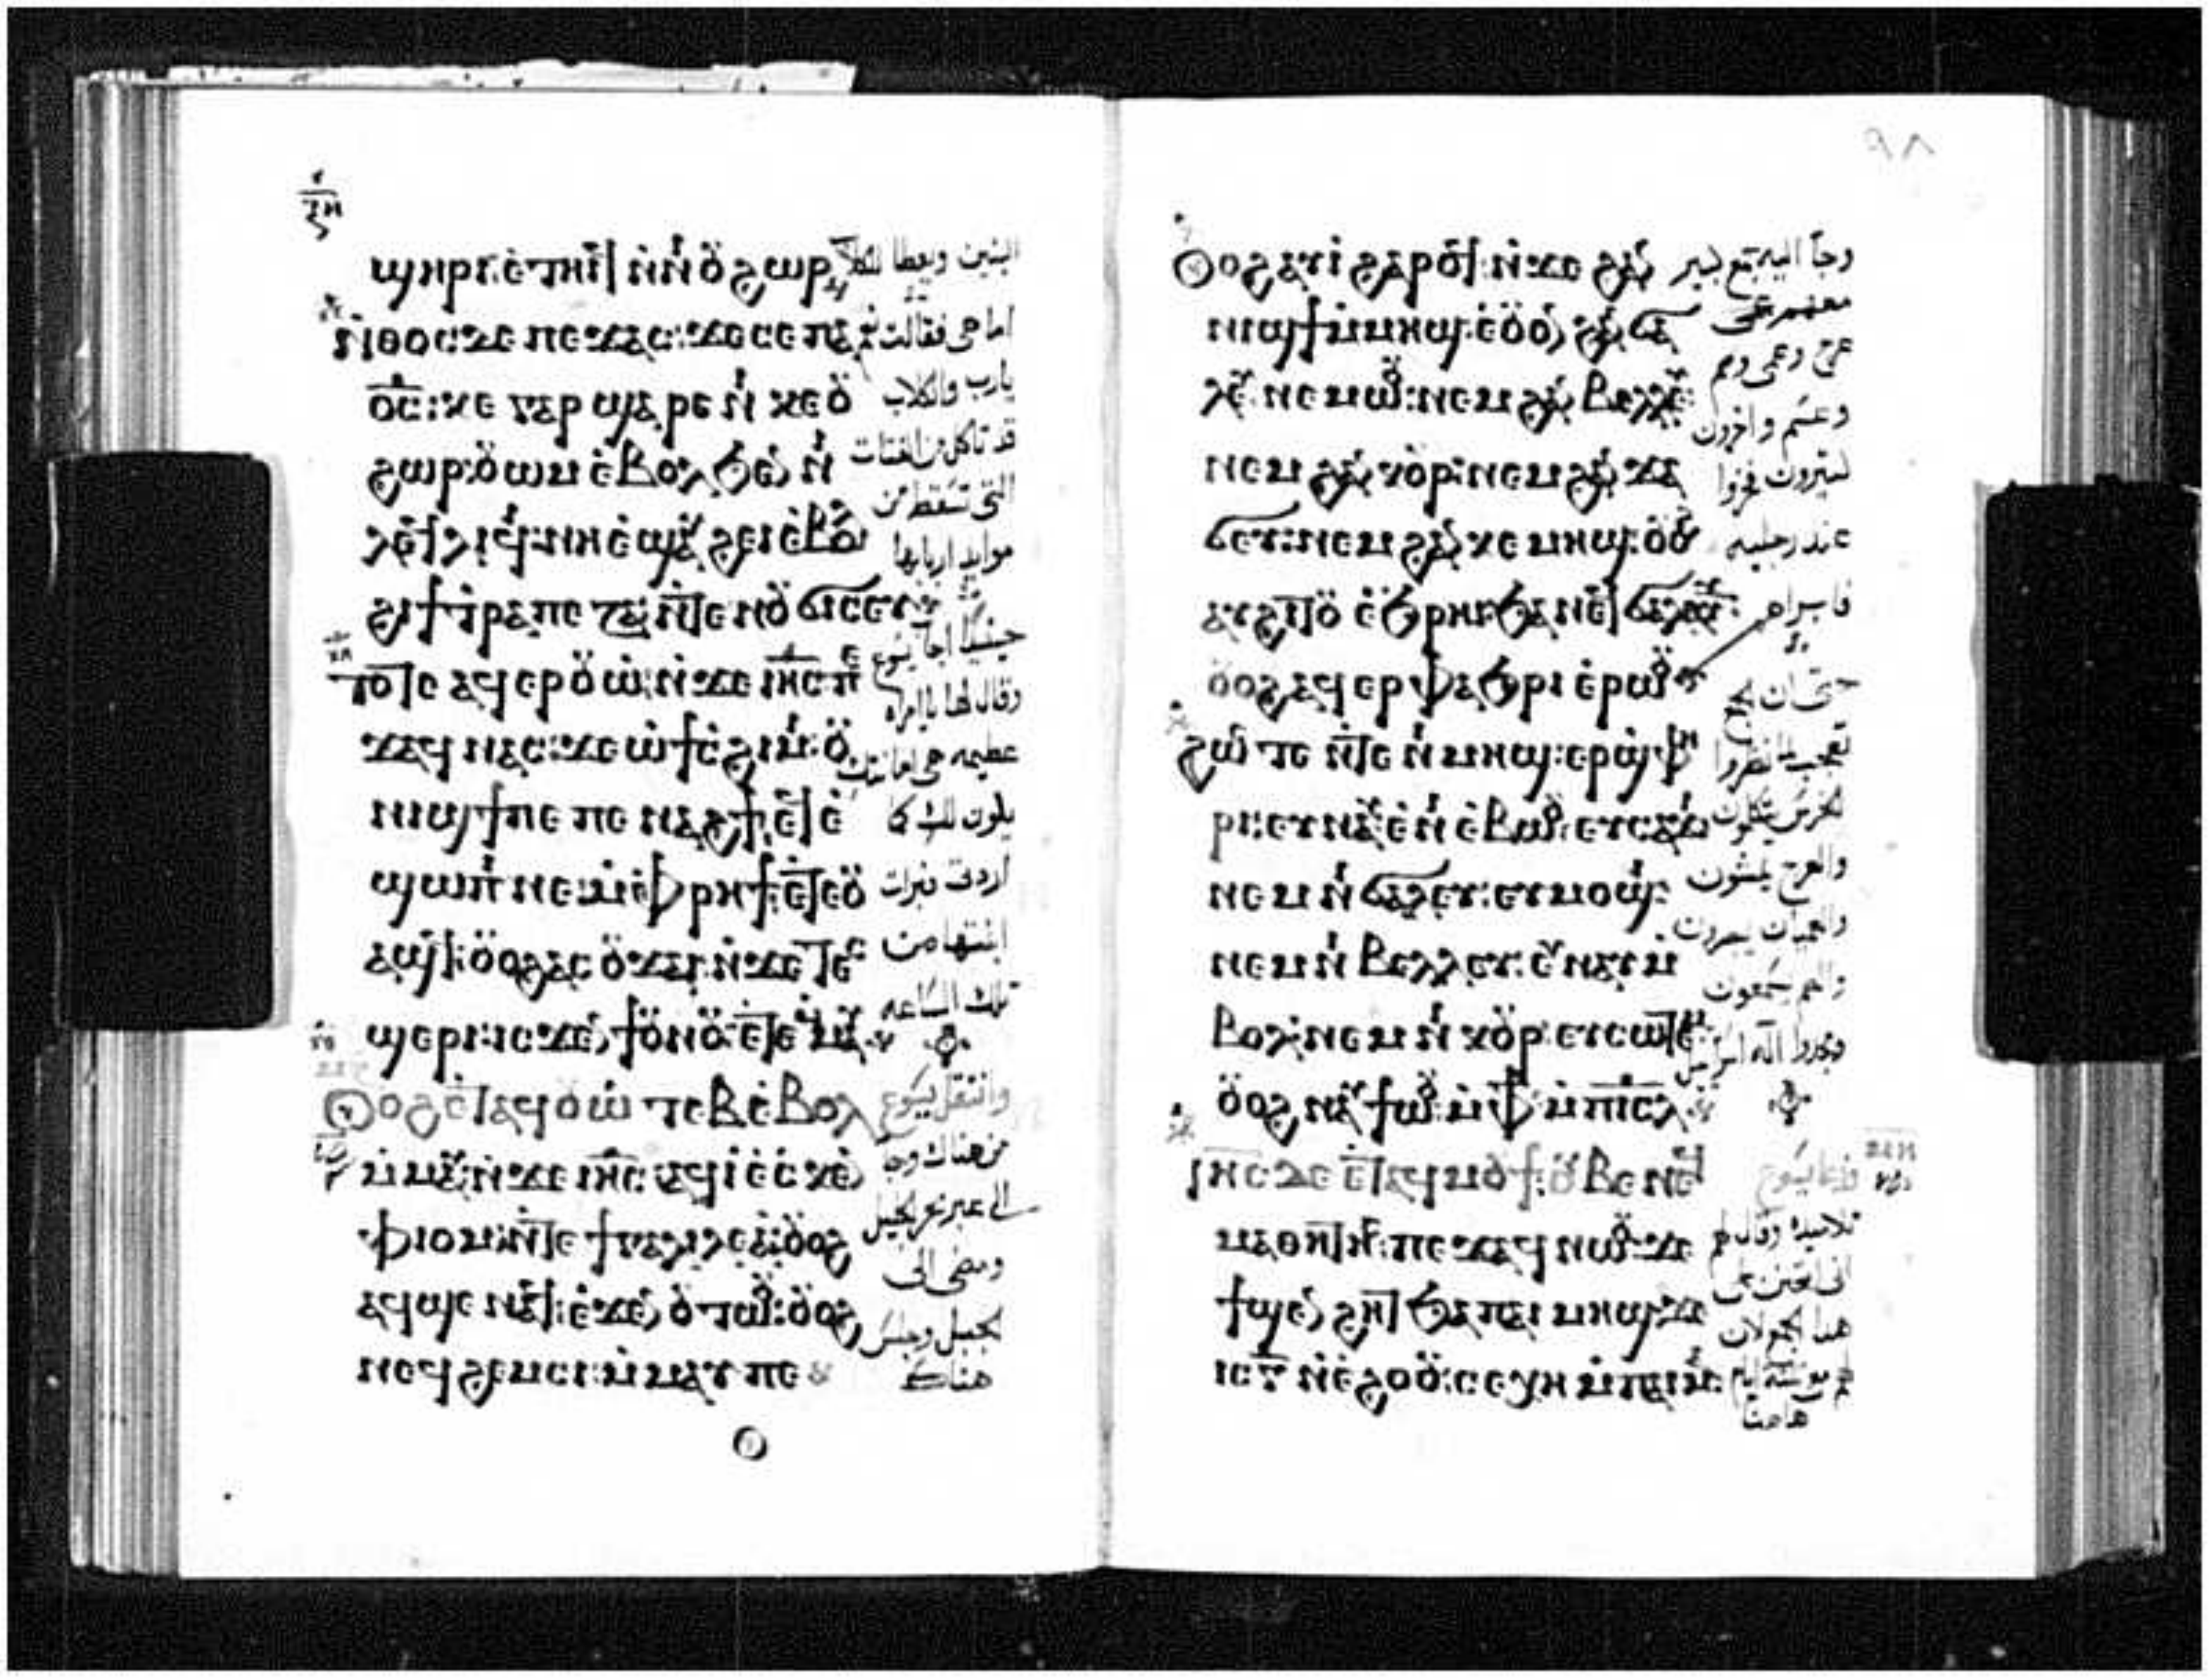 ϣⲏⲣⲓ ⲉ̀ⲧⲏⲓϥ ⲛ̀ⲛⲓⲟⲩϩⲱⲣ
ⲛ̀ⲑⲟⲥ ⲇⲉ ⲡⲉϫⲁⲥ: ϫⲉ ⲥⲉ ⲡⲁ
ⲟ̅ⲥ̅: ⲕⲉ ⲅⲁⲣ ϣⲁⲣⲉ ⲛⲓ ⲕⲉⲟⲩ
ϩⲱⲣ ⲟⲩⲱⲙ ⲉ̀ⲃⲟⲗ ϧⲉⲛ ⲛⲓ
ⲗⲉϥⲗⲓϥⲓ: ⲛⲏ ⲉ̀ϣⲁⲩϩⲉⲓ ⲉ̀ⲃⲟⲗ
ϩⲓ ϯⲧⲣⲁⲡⲉⲍⲁ ⲛ̀ⲧⲉ ⲛⲟⲩϭⲓⲥⲉⲩ
ⲧⲟⲧⲉ ⲁϥⲉⲣⲟⲩⲱ̀ ⲛ̀ϫⲉ ⲓ̅ⲏ̅ⲥ̅ ⲡⲉ
ϫⲁϥ ⲛⲁⲥ: ϫⲉ ⲱ̀ ϯⲥ̀ϩⲓⲙⲓ: ⲟⲩ
ⲛⲓϣϯ ⲡⲉ ⲡⲉⲛⲁϩϯ: ⲉϥⲉ̀
ϣⲱⲡⲓ ⲛⲉ ⲙ̀ⲫⲣⲏϯ ⲉ̀ⲧⲉⲟⲩ
ⲁϣϥ: ⲟⲩⲟϩ ⲁⲥⲟⲩϫⲁⲓ ⲛ̀ϫⲉ ⲧⲉⲥ
ϣⲉⲣⲓ: ⲓⲥϫⲉⲛ ϯⲟⲩⲛⲟⲩ ⲉ̀ⲧⲉⲙⲙⲁⲩ
ⲟⲩⲟϩ ⲉ̀ⲧⲁϥⲟⲩⲱⲧⲉⲃ ⲉ̀ⲃⲟⲗ
ⲙ̀ⲙⲁⲩ ⲛ̀ϫⲉ ⲓ̅ⲏ̅ⲥ̅: ⲁϥⲓ̀ ⲉ̀ⲥ̀ⲕⲉⲛ
ⲫⲓⲟⲙ ⲛ̀ⲧⲉ ϯⲅⲁⲗⲓⲗⲉⲁ̀: ⲟⲩⲟϩ
ⲁϥϣⲉ ⲛⲁϥ: ⲉ̀ϫⲉⲛ ⲟⲩⲧⲱⲟⲩ: ⲟⲩⲟϩ
ⲛⲉϥϩⲉⲙⲥⲓ ⲙ̀ⲙⲁⲩ ⲡⲉ
البنين ويعطا للكلاب
اما هى فقالت نعم
يارب والكلاب
قد تاكل من الفتات
التى تسقط من
موايد اربابها
حينيذ اجاب يسوع
وقال لها يا امراه
عظيمه هى امانتك
يكون لك كما
اردت فبرات
ابنتها من
تلك الساعه
وانتقل يسوع
من هناك وجا
الى عبر بحر الجليل
ومضى الى
الجبل وجلس
هناك
٩٨
ⲟⲩⲟϩ ⲁⲩⲓ̀ ϩⲁⲣⲟϥ: ⲛ̀ϫⲉ ϩⲁⲛ
ⲛⲓϣϯ ⲙ̀ⲙⲏϣ: ⲉ̀ⲟⲩⲟⲛ ϩⲁⲛ ϭⲁ
ⲗⲉⲩ ⲛⲉⲙⲱⲟⲩ: ⲛⲉⲙ ϩⲁⲛ ⲃⲉⲗⲗⲉⲩ:
ⲛⲉⲙ ϩⲁⲛ ⲕⲟⲩⲣ: ⲛⲉⲙ ϩⲁⲛ ϫⲁ
ϭⲉⲩ: ⲛⲉⲙ ϩⲁⲛ ⲕⲉⲙⲏϣ: ⲟⲩⲟϩ
ⲁⲩϩⲓⲧⲟⲩ ⲉ̀ϧⲣⲏⲓ ϧⲁ ⲛⲉϥϭⲁⲗⲁⲩϫ:
ⲟⲩⲟϩ ⲁϥⲉⲣⲫⲁϧⲣⲓ ⲉ̀ⲣⲱⲟⲩ
ϩⲱⲥⲧⲉ ⲛ̀ⲧⲉ ⲛⲓⲙⲏϣ: ⲉⲣϣ̀ⲫⲏ
ⲣⲓ: ⲉⲩⲛⲁⲩ ⲉ̀ⲛⲓ ⲉ̀ⲃⲱⲟⲩ: ⲉⲩⲥⲁϫⲓ
ⲛⲉⲙ ⲛⲓ ϭⲁⲗⲉⲩ: ⲉⲩⲙⲟϣⲓ:
ⲛⲉⲙ ⲛⲓ ⲃⲉⲗⲗⲉⲩ: ⲉⲩⲛⲁⲩ ⲙ̀
ⲃⲟⲗ: ⲛⲉⲙ ⲛⲓ ⲕⲟⲩⲣ: ⲉⲩⲥⲱⲧⲉⲙ
ⲟⲩⲟϩ ⲛⲁⲩϯⲱⲟⲩ ⲙ̀ⲫϯ ⲙ̀ⲡⲓ̅ⲥ̅ⲗ̅
ⲓ̅ⲏ̅ⲥ̅ ⲇⲉ ⲉ̀ⲧⲁϥⲙⲟⲩϯ: ⲟⲩⲃⲉ ⲛⲉϥ
ⲙⲁⲑⲏⲧⲏⲥ: ⲡⲉϫⲁϥ ⲛⲱⲟⲩ: ϫⲉ
ϯϣⲉⲛϩⲏⲧ ϧⲁ ⲡⲁⲓ ⲙⲏϣ: ϫⲉ
ⲓⲥ ⲅ̅ ⲛ̀ⲉ̀ϩⲟⲟⲩ: ⲥⲉⲭⲏ ⲙ̀ⲡⲁⲓⲙⲁ:
وجا اليه جمع كبير
معهم
عرج وعمى وصم
وعسم واخرون
كثيرون فخروا
عند رجليه
فابراهم
حتى ان الجمع
تعجب لما نظروا
الخرس يتكلمون
والعرج يمشون
والعميان يبصرون
والصم يسمعون
ومجدوا اله اسراييل
فدعا يسوع
تلاميذه وقال لهم
انى اتحنن على
هذا الجمع لان
لهم ثلثه ايام
هاهنا